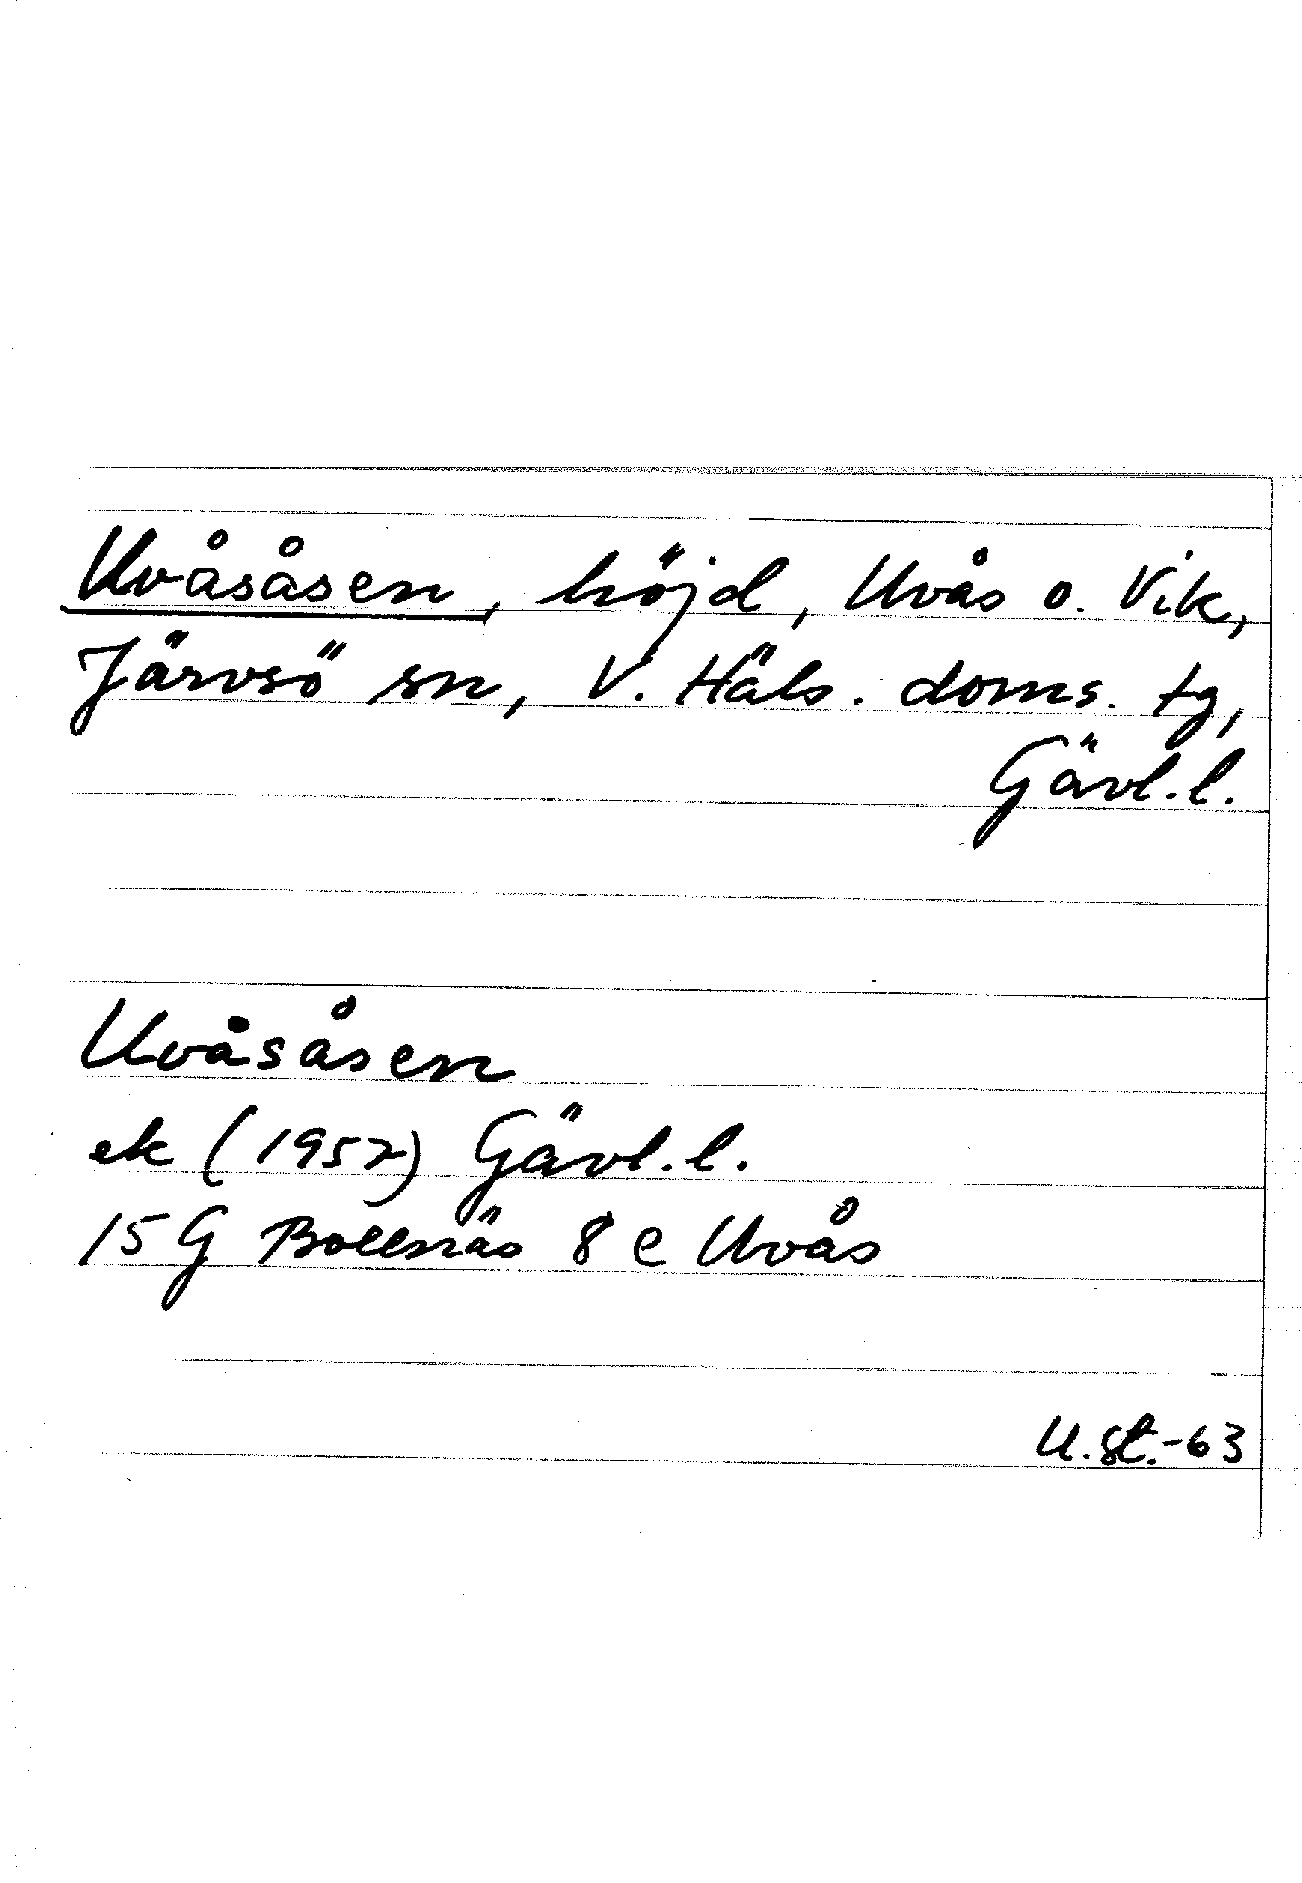 Uvåsåsen, höjd, Uvås o. Vik,
Järvsö sn, V. Häls. doms. tg,
Gävl. l.
Uvåsåsen
ek (1957) Gävl. l.
15 G Bollnäs 8 e Uvås
U.st.-63